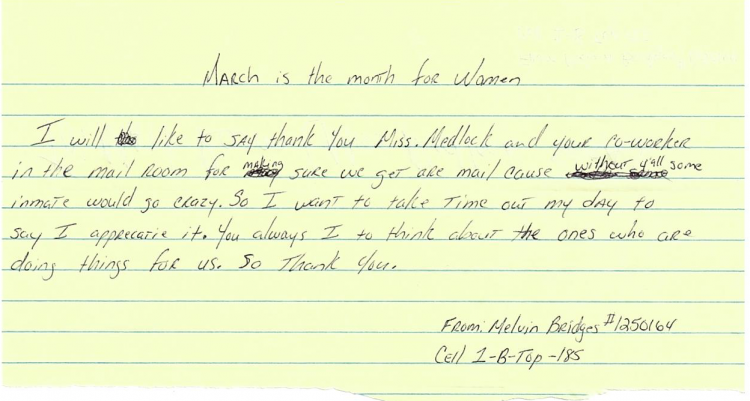 March is the month for Women
I will like to say thank you Miss. Medlock and your co-worker
in the mail room for making sure we get are mail cause without y'all some
inmate would go crazy. So I want to take time out my day to
say I apprecatie it. You always I to think about the ones who are
doing things for us. So Thank You.
From: Melvin Bridges #1250164
Cell 1-B-Top-185